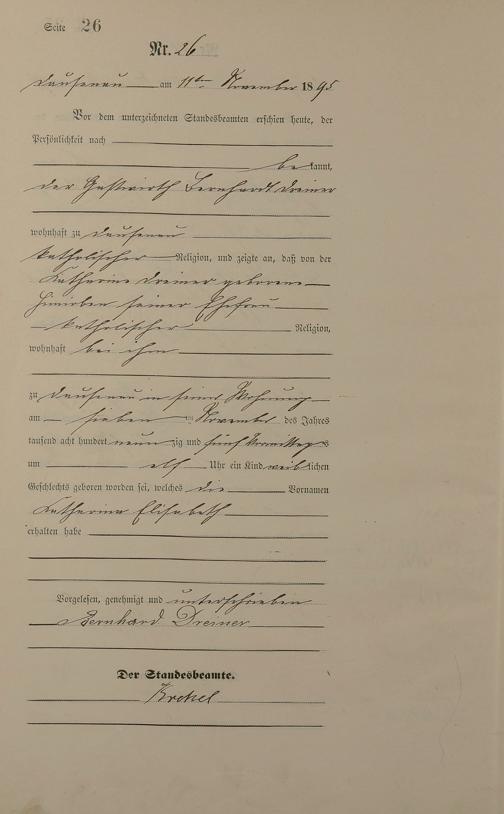 Seite 26
Nr. 26
Dausenau am 11ten November 1895
Vor dem unterzeichneten Standesbeamten erschien heute, der
Persönlichkeit nach
bekannt,
der Gastwirth Bernhardt Dreiner
wohnhaft zu Dausenau
katholischer Religion, und zeigte an, daß von der
Katharina Dreiner geborene
seiner Ehefrau
katholischer Religion,
wohnhaft bei ihm
zu Dausenau in seiner Wohnung
am sieben ten November des Jahres
tausend acht hundert neun zig und fünf Vormittags
um elf Uhr ein Kind weiblichen
Geschlechts geboren worden sei, welches die Vornamen
Katharina Elisabeth
erhalten habe
Vorgelesen, genehmigt und unterschrieben
Bernhard Dreiner
Der Standesbeamte.